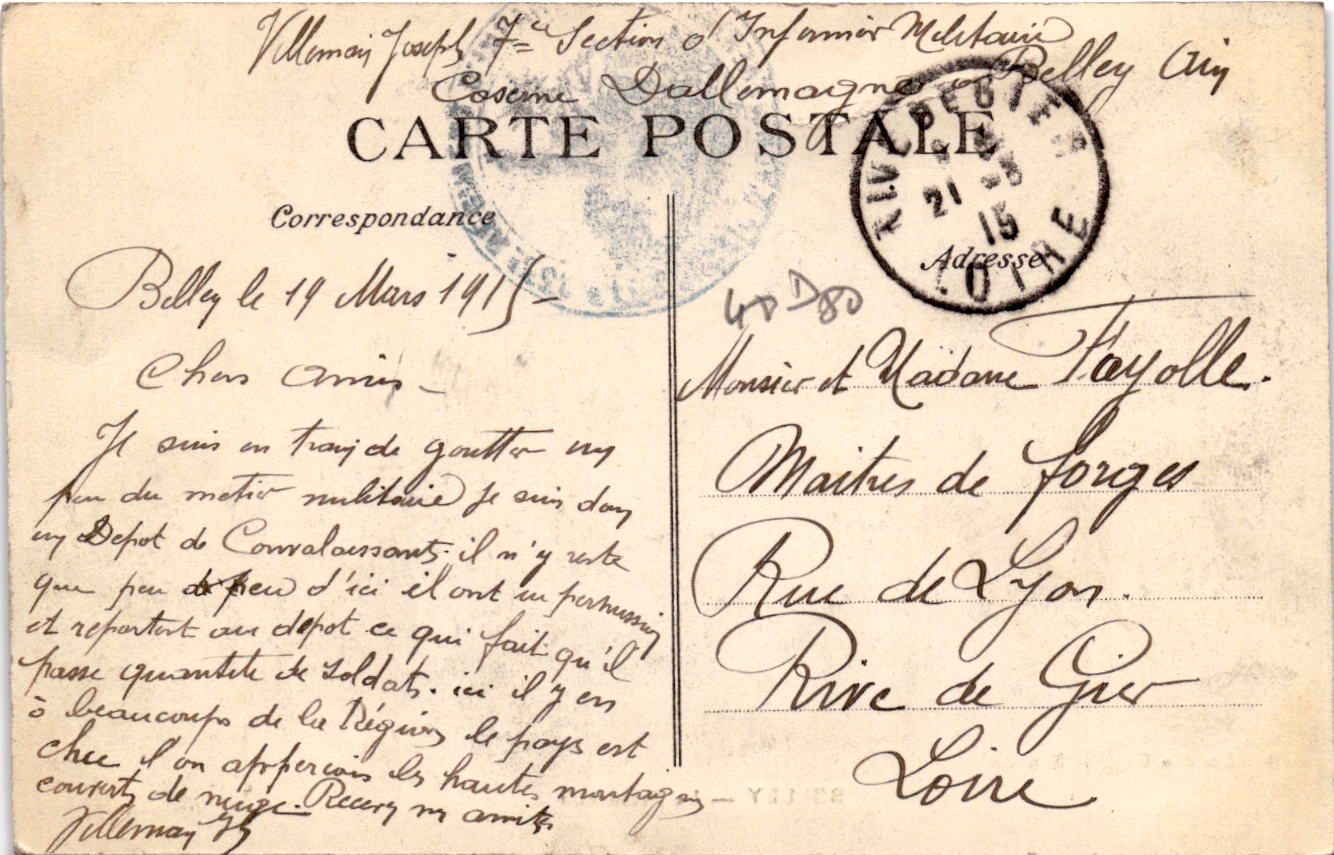 Villemain Joseph 7e Section d'Infirmier Militaire
Caserne Dallemagne Belley Ain
CARTE POSTALE
RIVE DE GIER
21
15
LOIRE
Correspondance
Adresse
Belley le 19 Mars 1915
Chers amis
Je suis en train de goutter un
peu du metier militaire Je suis dans
un Depot de Convalaissants. il n'y reste
que peu d'ici il ont un permission
et repartent au depot ce qui fait qu'il
passe quantité de soldats. ici il y en
à beaucoups de la Région le pays est
l'on apperçois les hautes montagnes
couverts de neige. Recevez m amitiés
Villemain Jh
40 D 80
Monsieur et Madame Fayolle.
Maitres de forges
Rue de Lyon.
Rive de Gier
Loire